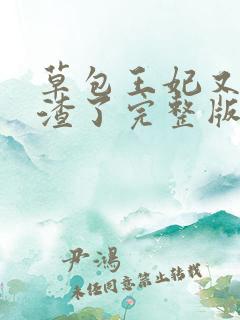 草包王妃又
渣了完整版
尹鴻
未任同意禁止转载